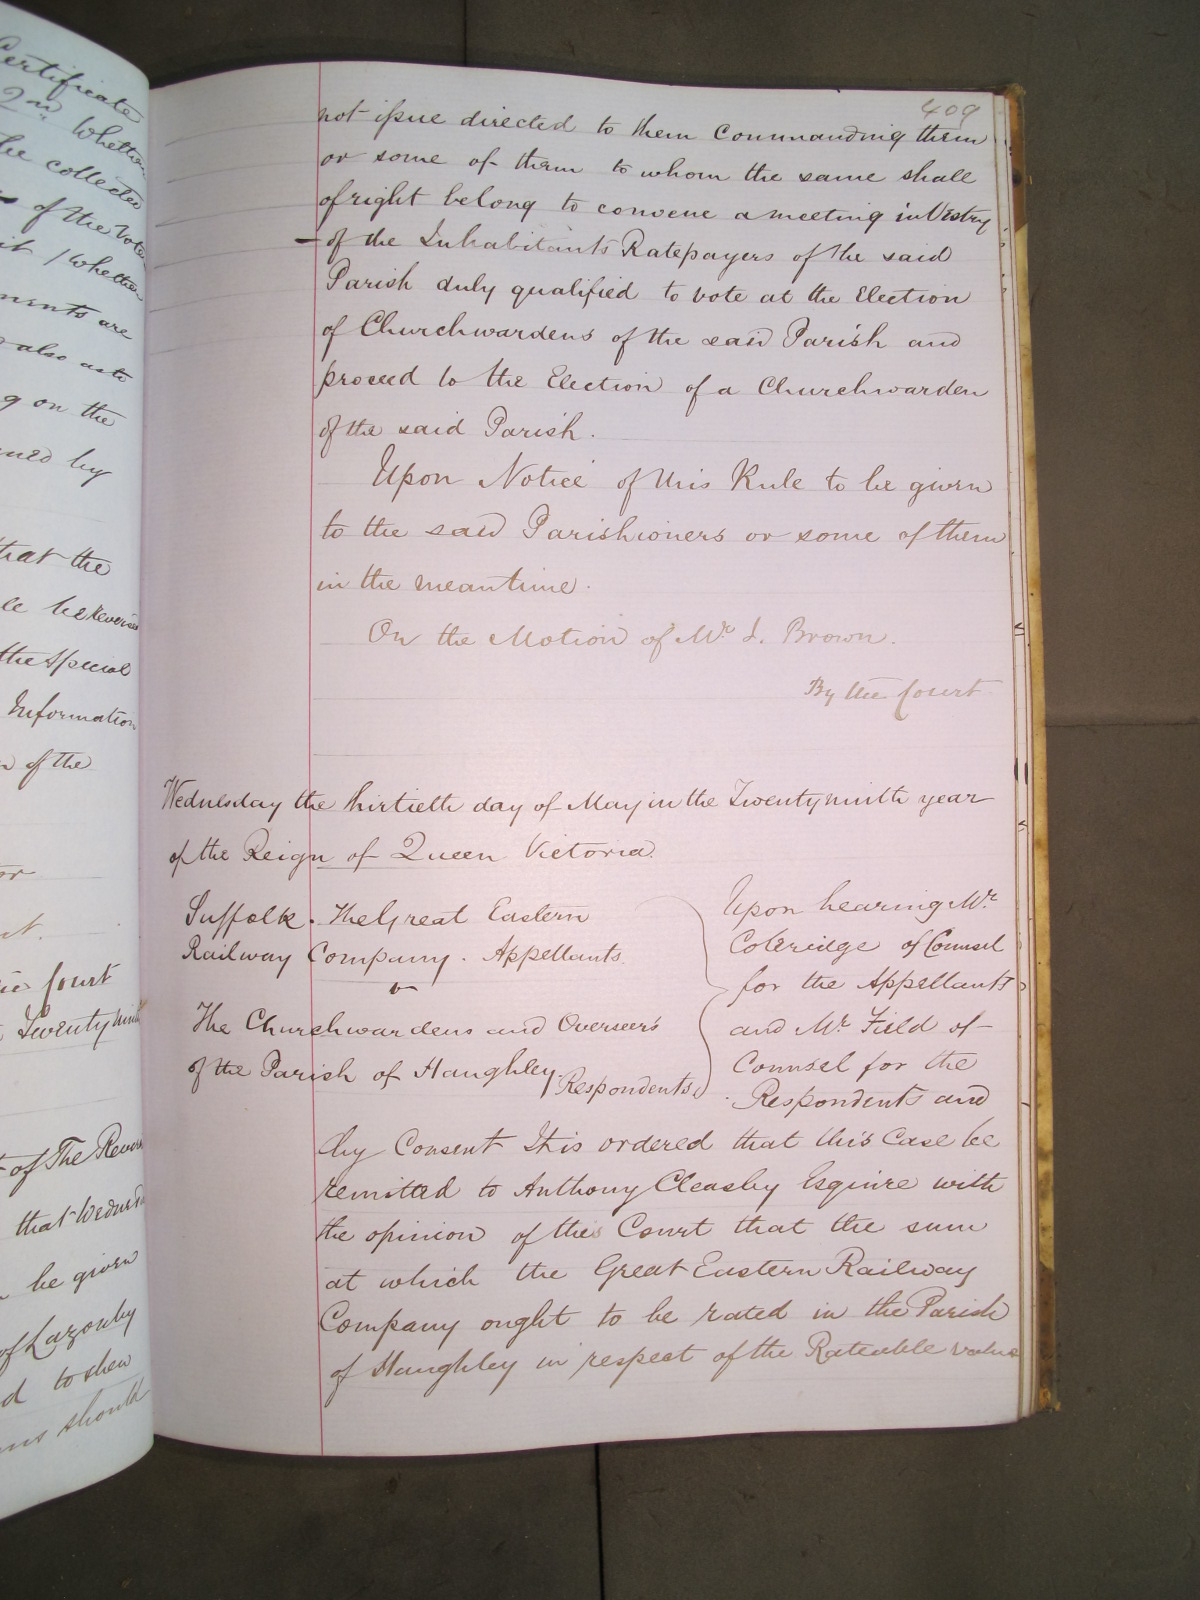 Certificate
2nd Whether
be collected
of the Voter
it / Whether
ments are
also as to
g on the
ned by
that the
le be Reversed
the Special
Information
of the
or
rt.
the Court
Twentyninth
of The Reverend
that Wednesday
be given
of Lazonby
d to shew
ns should
409
not issue directed to them Commanding them
or some of them to whom the same shall
of right belong to convene a meeting in Vestry
of the Inhabitants Ratepayers of the said
Parish duly qualified to vote at the Election
of Churchwardens of the said Parish and
proceed to the Election of a Churchwarden
of the said Parish.
Upon Notice of this Rule to be given
to the said Parishioners or some of them
in the meantime.
On the Motion of Mr J. Brown.
By the Court
Wednesday the thirtieth day of May in the Twentyninth year
of the Reign of Queen Victoria.
Suffolk. The Great Eastern
Railway Company. Appellants.
v
The Churchwardens and Overseers
of the Parish of Haughley. Respondents
Upon hearing Mr
Coleridge of Counsel
for the Appellants
and Mr Field of
Counsel for the
Respondents and
by Consent It is ordered that this Case be
remitted to Anthony Cleasby Esquire with
the opinion of this Court that the sum
at which the Great Eastern Railway
Company ought to be rated in the Parish
of Haughley in respect of the Rateable value